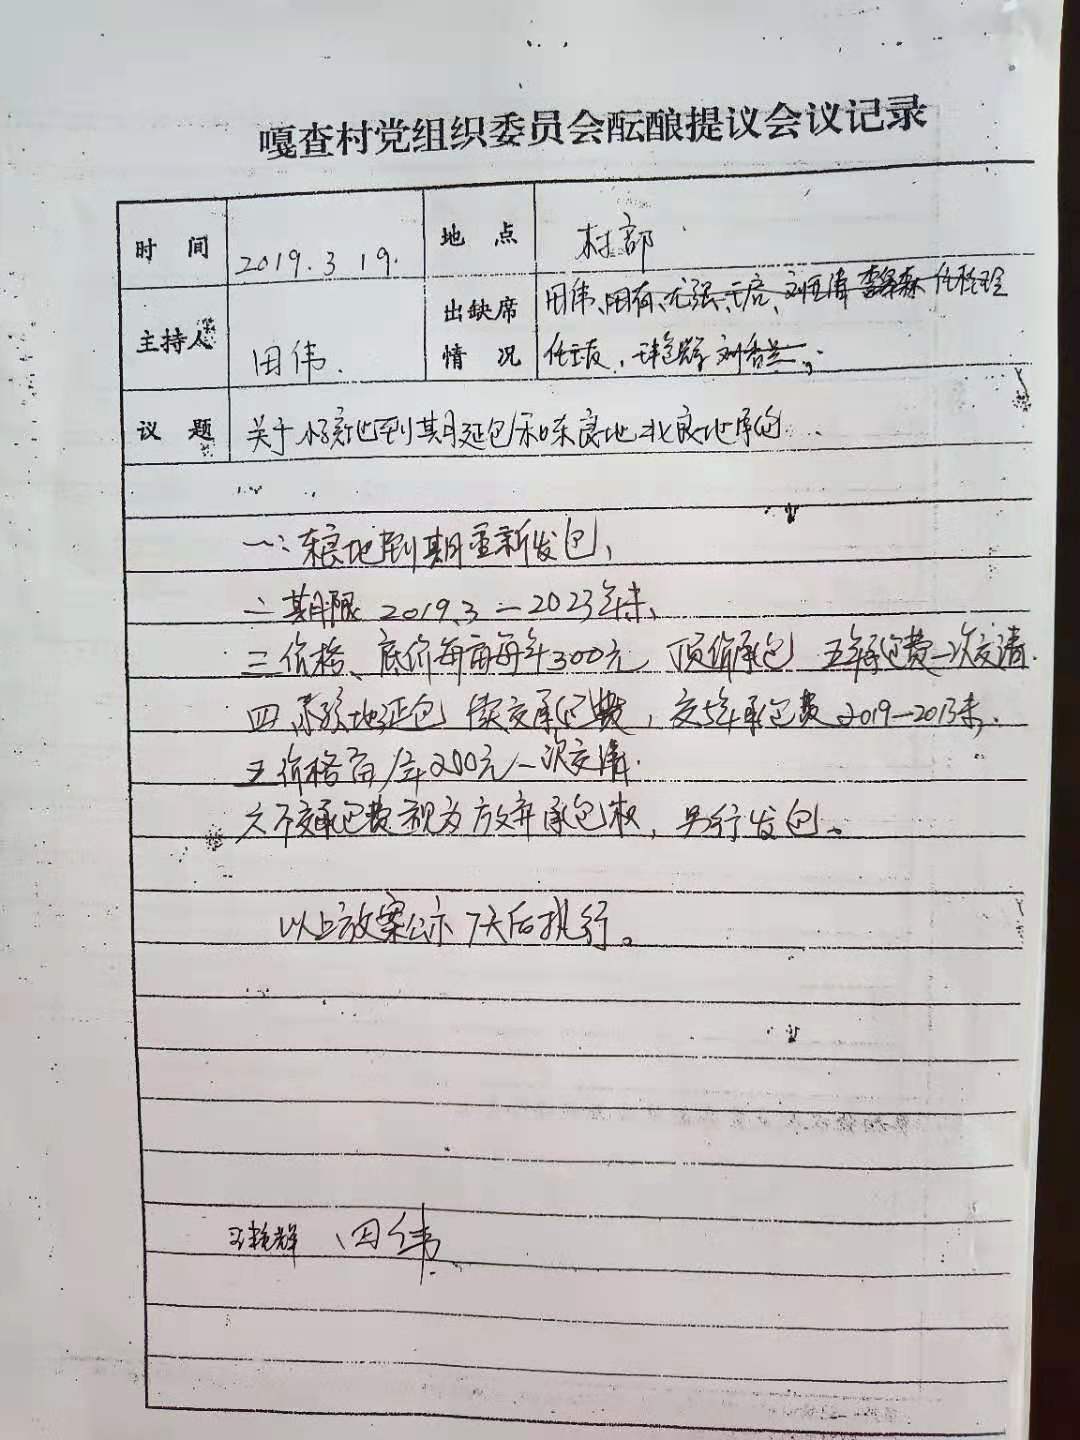 嘎查村党组织委员会酝酿提议会议记录
时 间 2019.3 19. 地 点 村部
主持人 田伟. 出缺席情 况 田伟、田有、尤强、王启、刘亚涛
任玉友, 王艳辉 刘香兰,
议 题 关于 地到期延包和东良地北良地承包.
一: 东良地到期重新发包、
二 期限 2019.3－2023年末、
三 价格、底价每亩每年300元 顶价承包 五年承包费一次交清.
四 地延包 续交承包费, 交5年承包费 2019－2013末,
五 价格亩/年200元一次交清.
六 不交承包费视为放弃承包权, 另行发包、
以上放案公示 7天后执行。
王艳辉、田伟